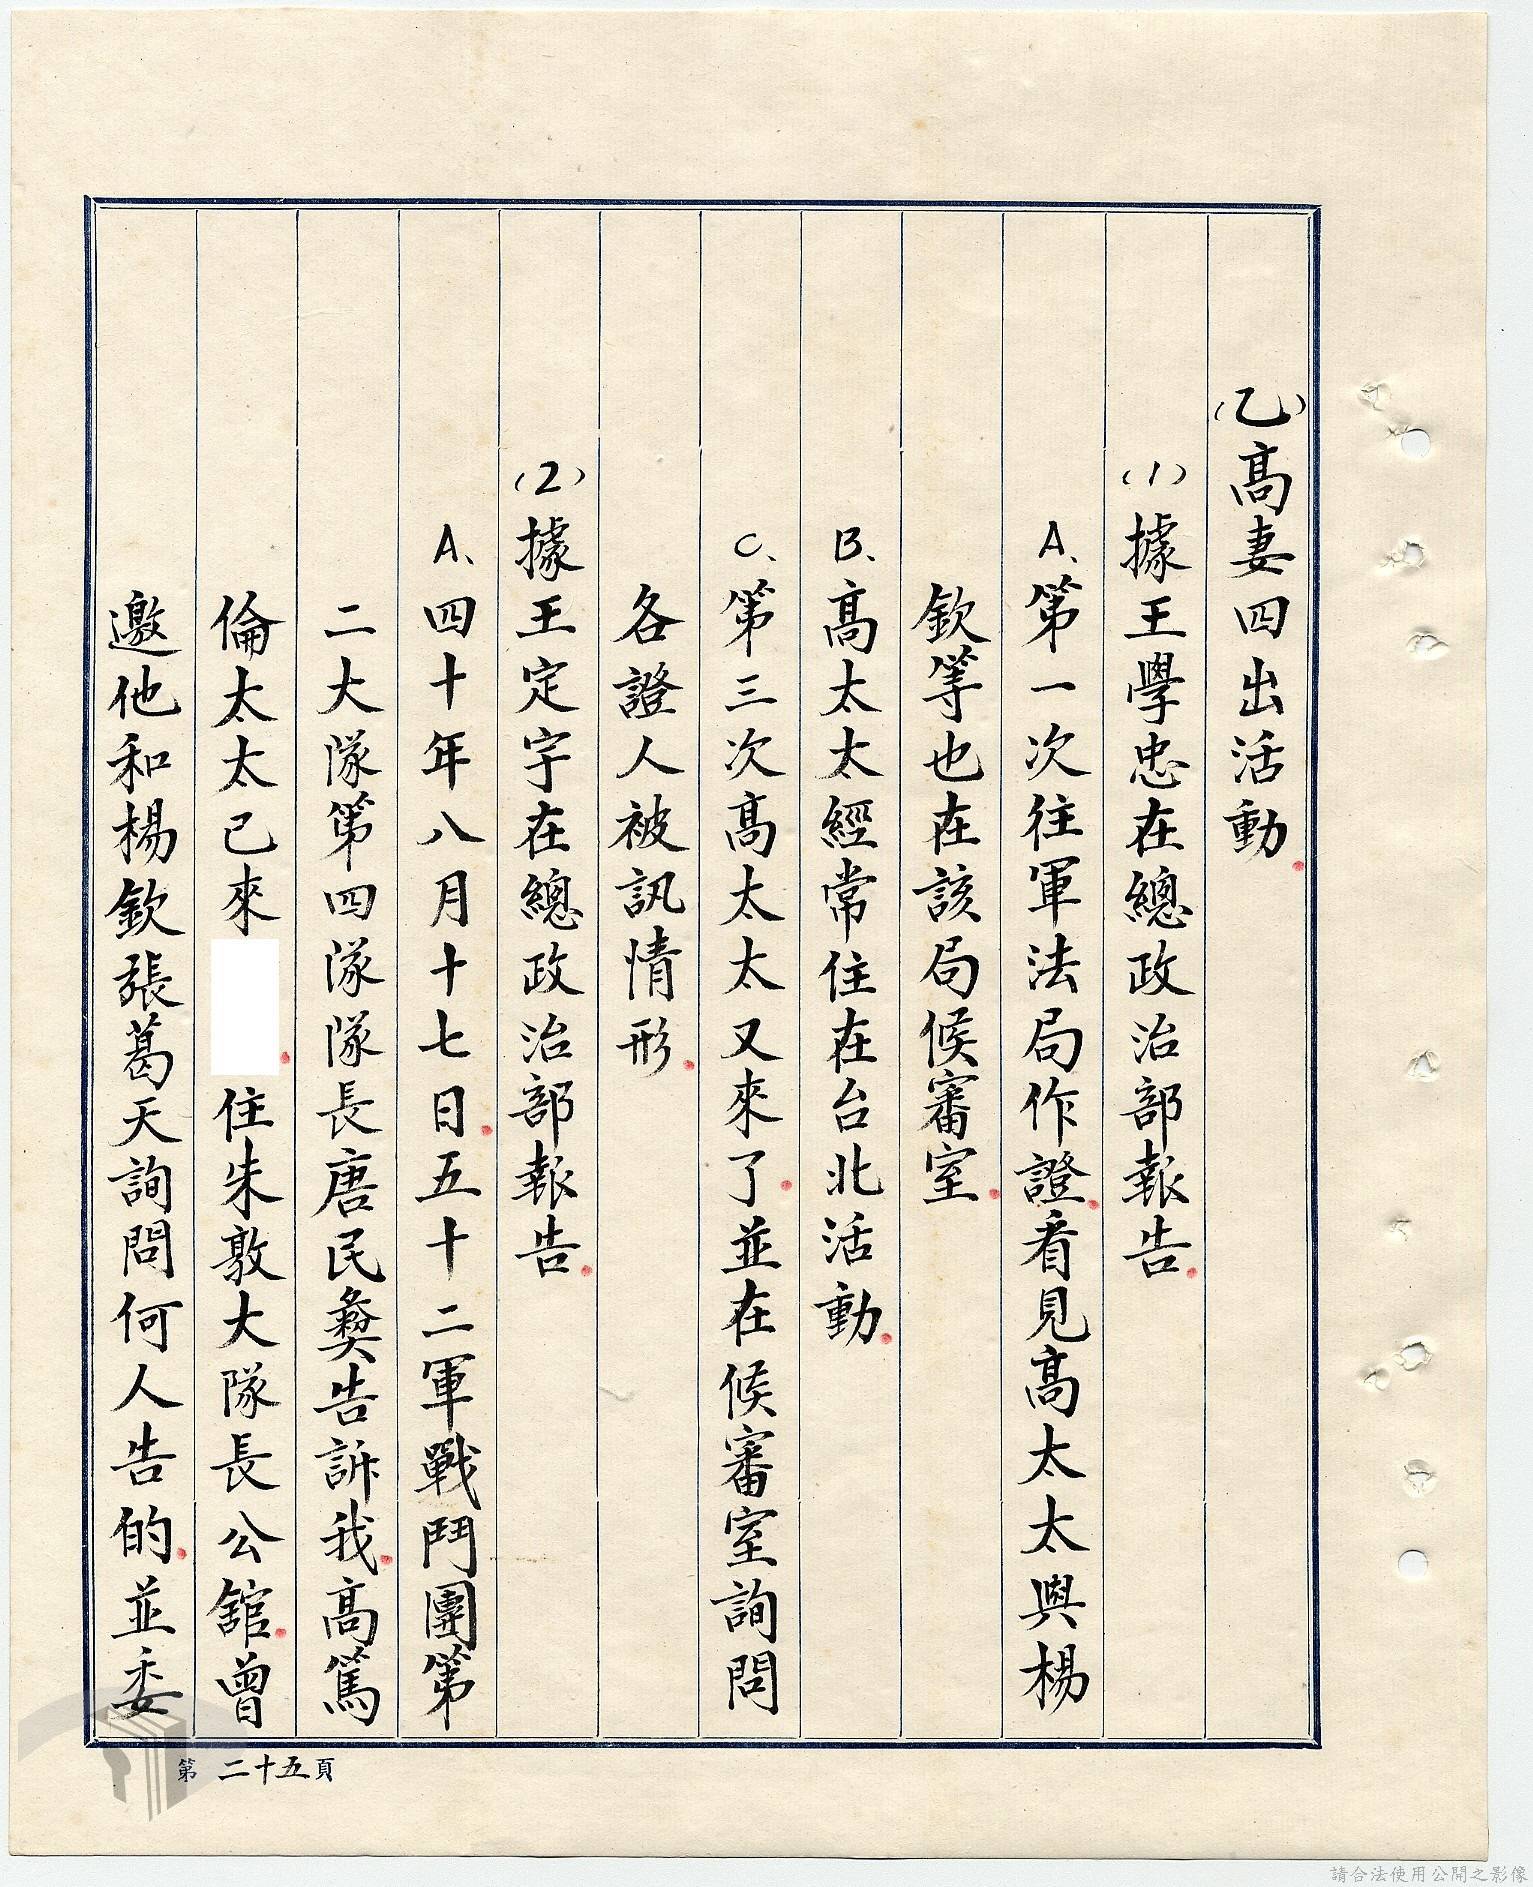 (乙)高妻四出活動.
(1)據王學忠在總政治部報告.
A、第一次往軍法局作證.看見高太太與楊
欽等也在該局候審室.
B、高太太經常住在台北活動.
C、第三次高太太又來了.並在候審室詢問
各證人被訊情形.
(2)據王定宇在總政治部報告.
A、四十年八月十七日.五十二軍戰鬥團第
二大隊第四隊隊長唐民彝告訴我.高篤
倫太太已來.住朱敦大隊長公舘.曾
邀他和楊欽張葛天詢問何人告的.並委
第二十五頁
請合法使用公開之影像